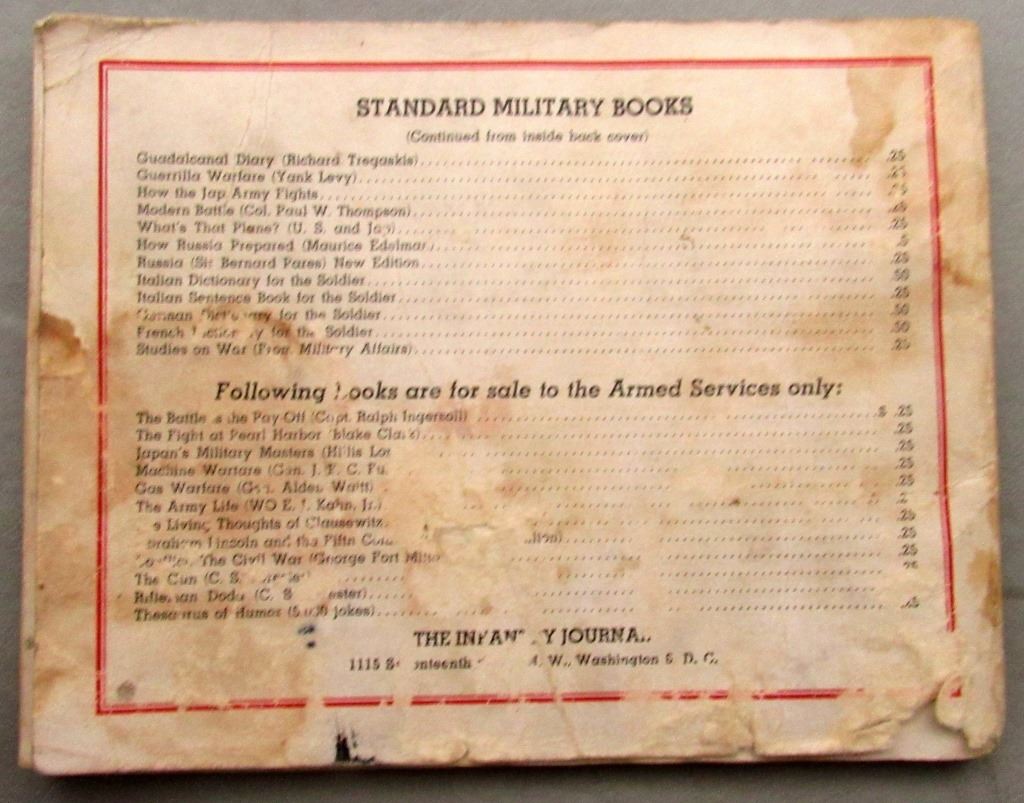 STANDARD MILITARY BOOKS
(Continued from inside back cover)
Guadalcanal Diary (Richard Tregaskis) .25
Guerrilla Warfare (Yank Levy) .25
How the Jap Army Fights
Modern Battle (Col. Paul W. Thompson)
What's That Plane? (U. S. and Jap) .25
How Russia Prepared (Maurice
Russia (Sir Bernard Pares) New Edition .25
Italian Dictionary for the Soldier .50
Italian Sentence Book for the Soldier .25
German for the Soldier .50
French for the Soldier .50
Studies on War (From Military Affairs) .25
Following are for sale to the Armed Services only:
The Battle is the Pay-Off (Capt. Ralph Ingersoll) $ .25
The Fight at Pearl Harbor Blake .25
Japan's Military Masters (Hillis .25
Machine Warfare (Gen. J. F. C. .25
Gas Warfare Alden Waitt) .25
The Army Life (WO E. J. Kahn, Jr.)
Living Thoughts of Clausewitz .25
Lincoln and the Fifth .25
The Civil War (George Fort .25
The Gun (C. S.
Rifleman Dodd (C. S
of Humor jokes)
THE JOURNAL
1115 W., Washington D. C.